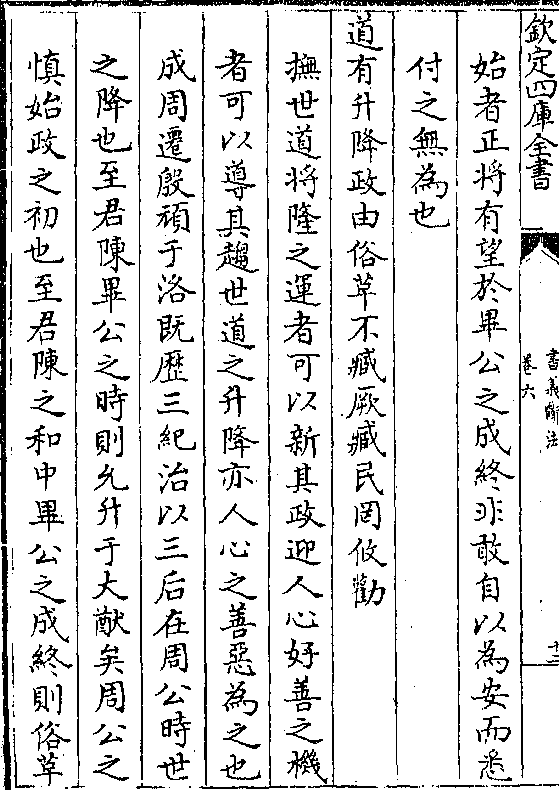 欽定四庫全書
書義斷法
卷六
十三
始者正將有望於畢公之成終非敢自以為安而悉
付之無為也
道有升降政由俗革不臧厥臧民罔攸勸
撫世道將隆之運者可以新其政迎人心好善之機
者可以導其趨世道之升降亦人心之善惡為之也
成周遷殷頑于洛既歷三紀治以三后在周公時世
之降也至君陳畢公之時則允升于大猷矣周公之
慎始政之初也至君陳之和中畢公之成終則俗革